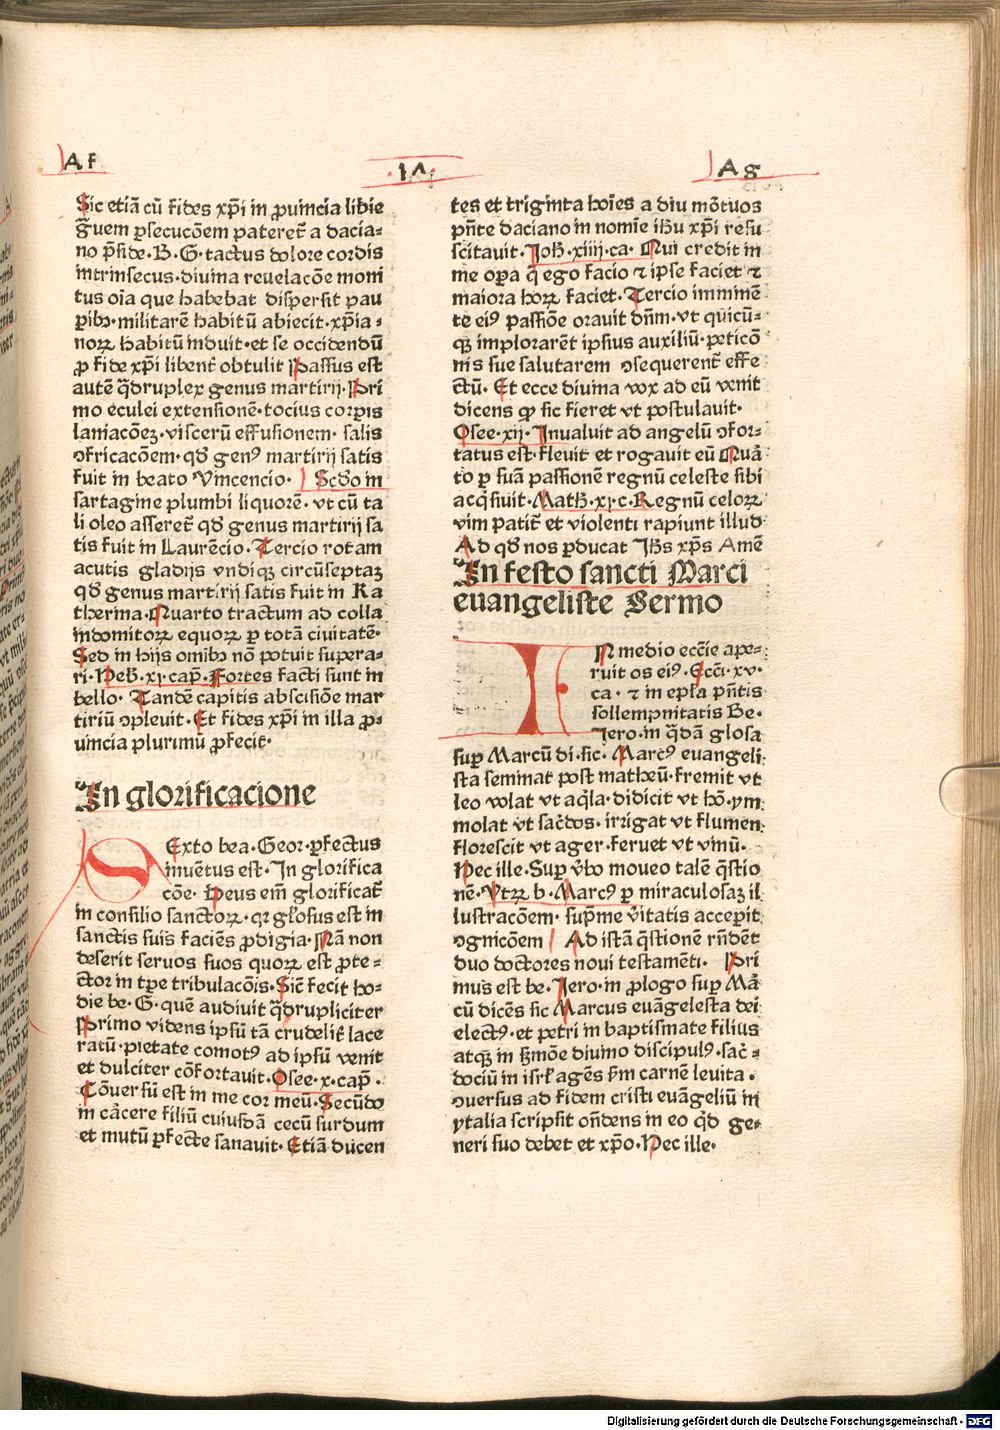 A f
·I4·
A g
Sic etiā cū fides xp̄i in ꝓuincia libie
ḡuem ꝑsecucōem pateret̄ a dacia⸗
no p̄side·B·G·tactus dolore cordis
intrinsecus·diuina reuelacōe moni
tus oīa que habebat dispersit pau
ꝑibꝫ·militarē habitū abiecit·xp̄ia⸗
noꝝ habitū induit·et se occidendū
ꝓ fide xp̄i libent̄ obtulit Passus est
autē q̄druplex genus martirij·Pri
mo eculei extensionē·tocius corꝑis
laniacōeꝫ·viscerū effusionem·salis
ↄfricacōem·qđ genꝰ martirij satis
fuit in beato Vincencio· Scđo in
sartagine plumbi liquorē·vt cū ta
li oleo asseret̄ qđ genus martirij sa
tis fuit in Laurēcio·Tercio rotam
acutis gladijs vndiqꝫ circūseptaꝫ
qđ genus martirij satis fuit in Ka
therina·Quarto tractum ad colla
indomitoꝝ equoꝝ ꝑ totā ciuitatē·
Sed in hijs omībꝫ nō potuit supera⸗
ri·Heb̄·xj·cap̄·Fortes facti sunt in
bello· Tandē capitis abscisiōe mar
tiriū ↄpleuit·Et fides xp̄i in illa ꝓ⸗
uincia plurimū ꝓfecit·
In glorificacione
SExto bea·Geor·ꝑfectus
inuētus est·In glorifica
cōe· Deus em̄ glorificat̄
in consilio sanctoꝝ·qꝛ gl̄osus est in
sanctis suis faciēs ꝓdigia·Nā non
deserit seruos suos quoꝝ est ꝓte⸗
ctor in tꝑe tribulacōis·Sic̄ fecit ho⸗
die be·G·quē audiuit q̄drupliciter
Primo videns ipsū tā crudelit̄ lace
ratū·pietate comotꝰ ad ipsū venit
et dulciter cōfortauit·Osee·x·cap̄·
Cōuersū est in me cor meū·Secūdo
in cācere filiū cuiusdā cecū surdum
et mutū ꝑfecte sanauit·Etiā ducen
tes et triginta hoīes a diu mōtuos
p̄nte daciano in nomīe ih̄u xp̄i resu
scitauit·Joh̄·xiiij·ca·Qui credit in
me oꝑa q̄ ego facio ⁊ ipse faciet ⁊
maiora hoꝝ faciet·Tercio imminē
te eiꝰ passiōe orauit dn̄m·vt quicū⸗
qꝫ implorarēt ipsius auxiliū·peticō
nis sue salutarem ↄsequerent̄ effe
ctū·Et ecce diuina vox ad eū venit
dicens ꝙ sic fieret vt postulauit·
Osee·xij·Inualuit ad angelū ↄfor⸗
tatus est·fleuit et rogauit eū Quā
to ꝑ suā passionē regnū celeste sibi
acq̄siuit·Math̄·xj·c·Regnū celoꝝ
vim patit̄ et violenti rapiunt illud
Ad qđ nos ꝑducat Ih̄s xp̄s Amē
In festo sancti Marci
euangeliste Sermo
IN medio ecc̄ie ape⸗
ruit os eiꝰ·Ecci·xv·
ca·⁊ in ep̄la p̄ntis
sollempnitatis Be·
Jero·in q̄dā glosa
suꝑ Marcū di·sic·Marcꝰ euangeli
sta seminat post matheū·fremit vt
leo volat vt aq̄la·didicit vt hō·ym
molat vt sac̄dos·irrigat vt flumen
florescit vt ager·feruet vt vinū·
Hec ille·Suꝑ v̄bo moueo talē q̄stio
nē·Vtꝝ b·Marcꝰ ꝑ miraculosaꝫ il
lustracōem·sup̄me v̄itatis acceꝑit
ↄgnicōem Ad istā q̄stionē rn̄dēt
duo doctores noui testamēti· Pri
mus est be·Jero·in ꝓlogo suꝑ Mā
cū dicēs sic Marcus euāgelesta dei
electꝰ·et petri in baptismate filius
atqꝫ in s̄mōe diuino discipulꝰ·sac̄⸗
dociū in isrl̄ agēs s̄m carnē leuita·
ↄuersus ad fidem cristi euāgeliū in
ytalia scripsit on̄dens in eo qđ ge⸗
neri suo debet et xp̄o·Hec ille·
Digitalisierung gefördert durch die Deutsche Forschungsgemeinschaft - DFG